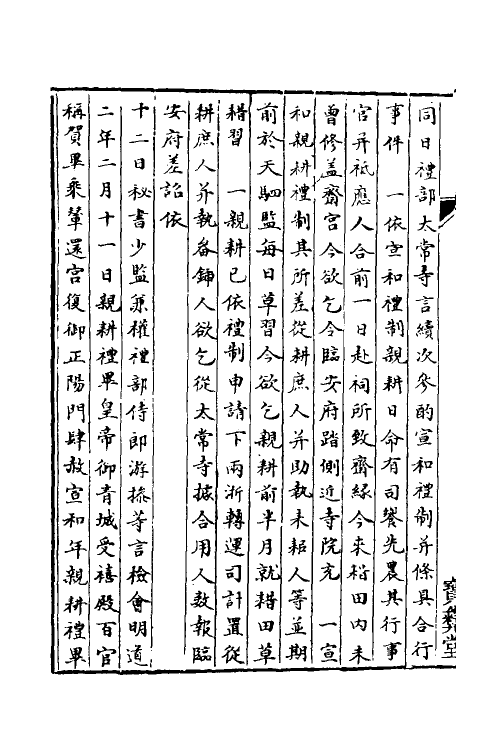 同日禮部太常寺言續次參酌宣和禮制并條具合行
事件　一依宣和禮制親耕日命有司饗先農其行事
官并祗應人合前一日赴祠所致齋緣今來耤田内未
曾修蓋齋宮今欲乞令臨安府踏側近寺院充　一宣
和親耕禮制其所差從耕庶人并助執耒耜人等並期
前於天駟監每日草習今欲乞親耕前半月就耤田草
耤習　一親耕已依禮制申請下兩浙轉運司計置從
耕庶人并執畚鍤人欲乞從太常寺據合用人數報臨
安府差詔依
十二日秘書少監兼權禮部侍郎游操等言檢會明道
二年二月十一日親耕禮畢皇帝御青城受禧殿百官
稱賀畢乘輦還宮復御正陽門肆赦宣和年親耕禮畢
寶彝堂